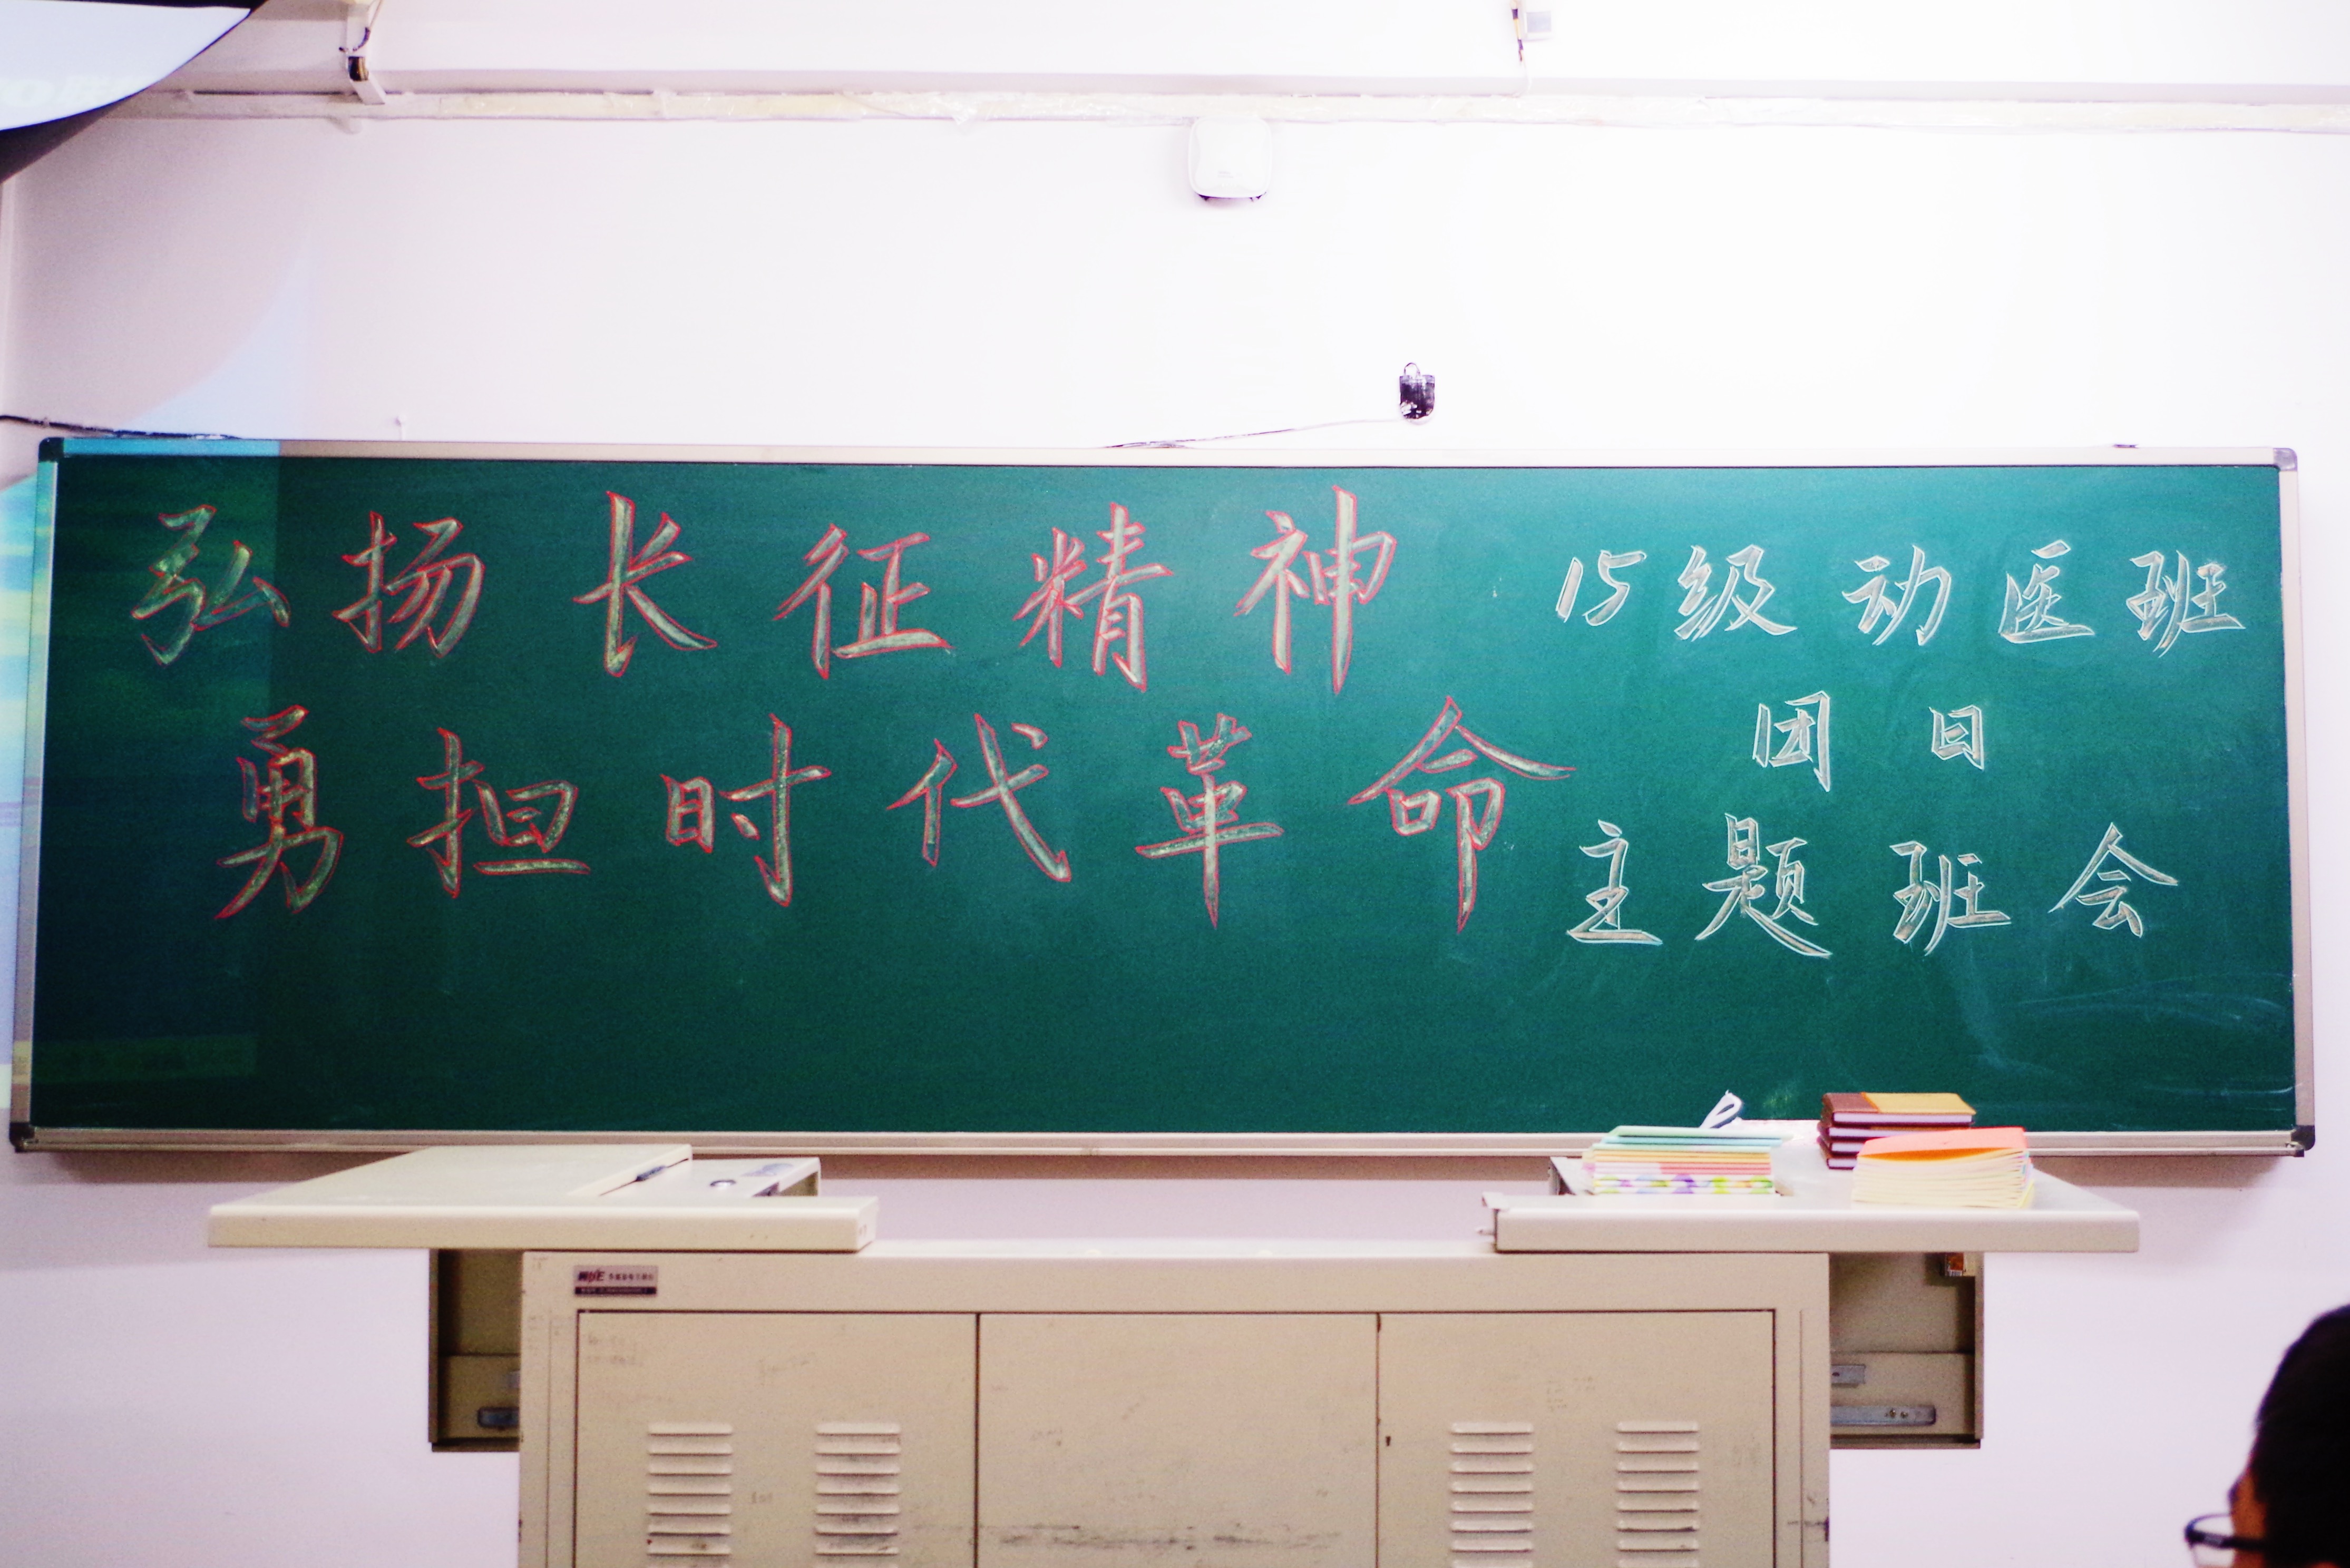 弘扬长征精神
勇担时代革命
15级动医班
团日
主题班会